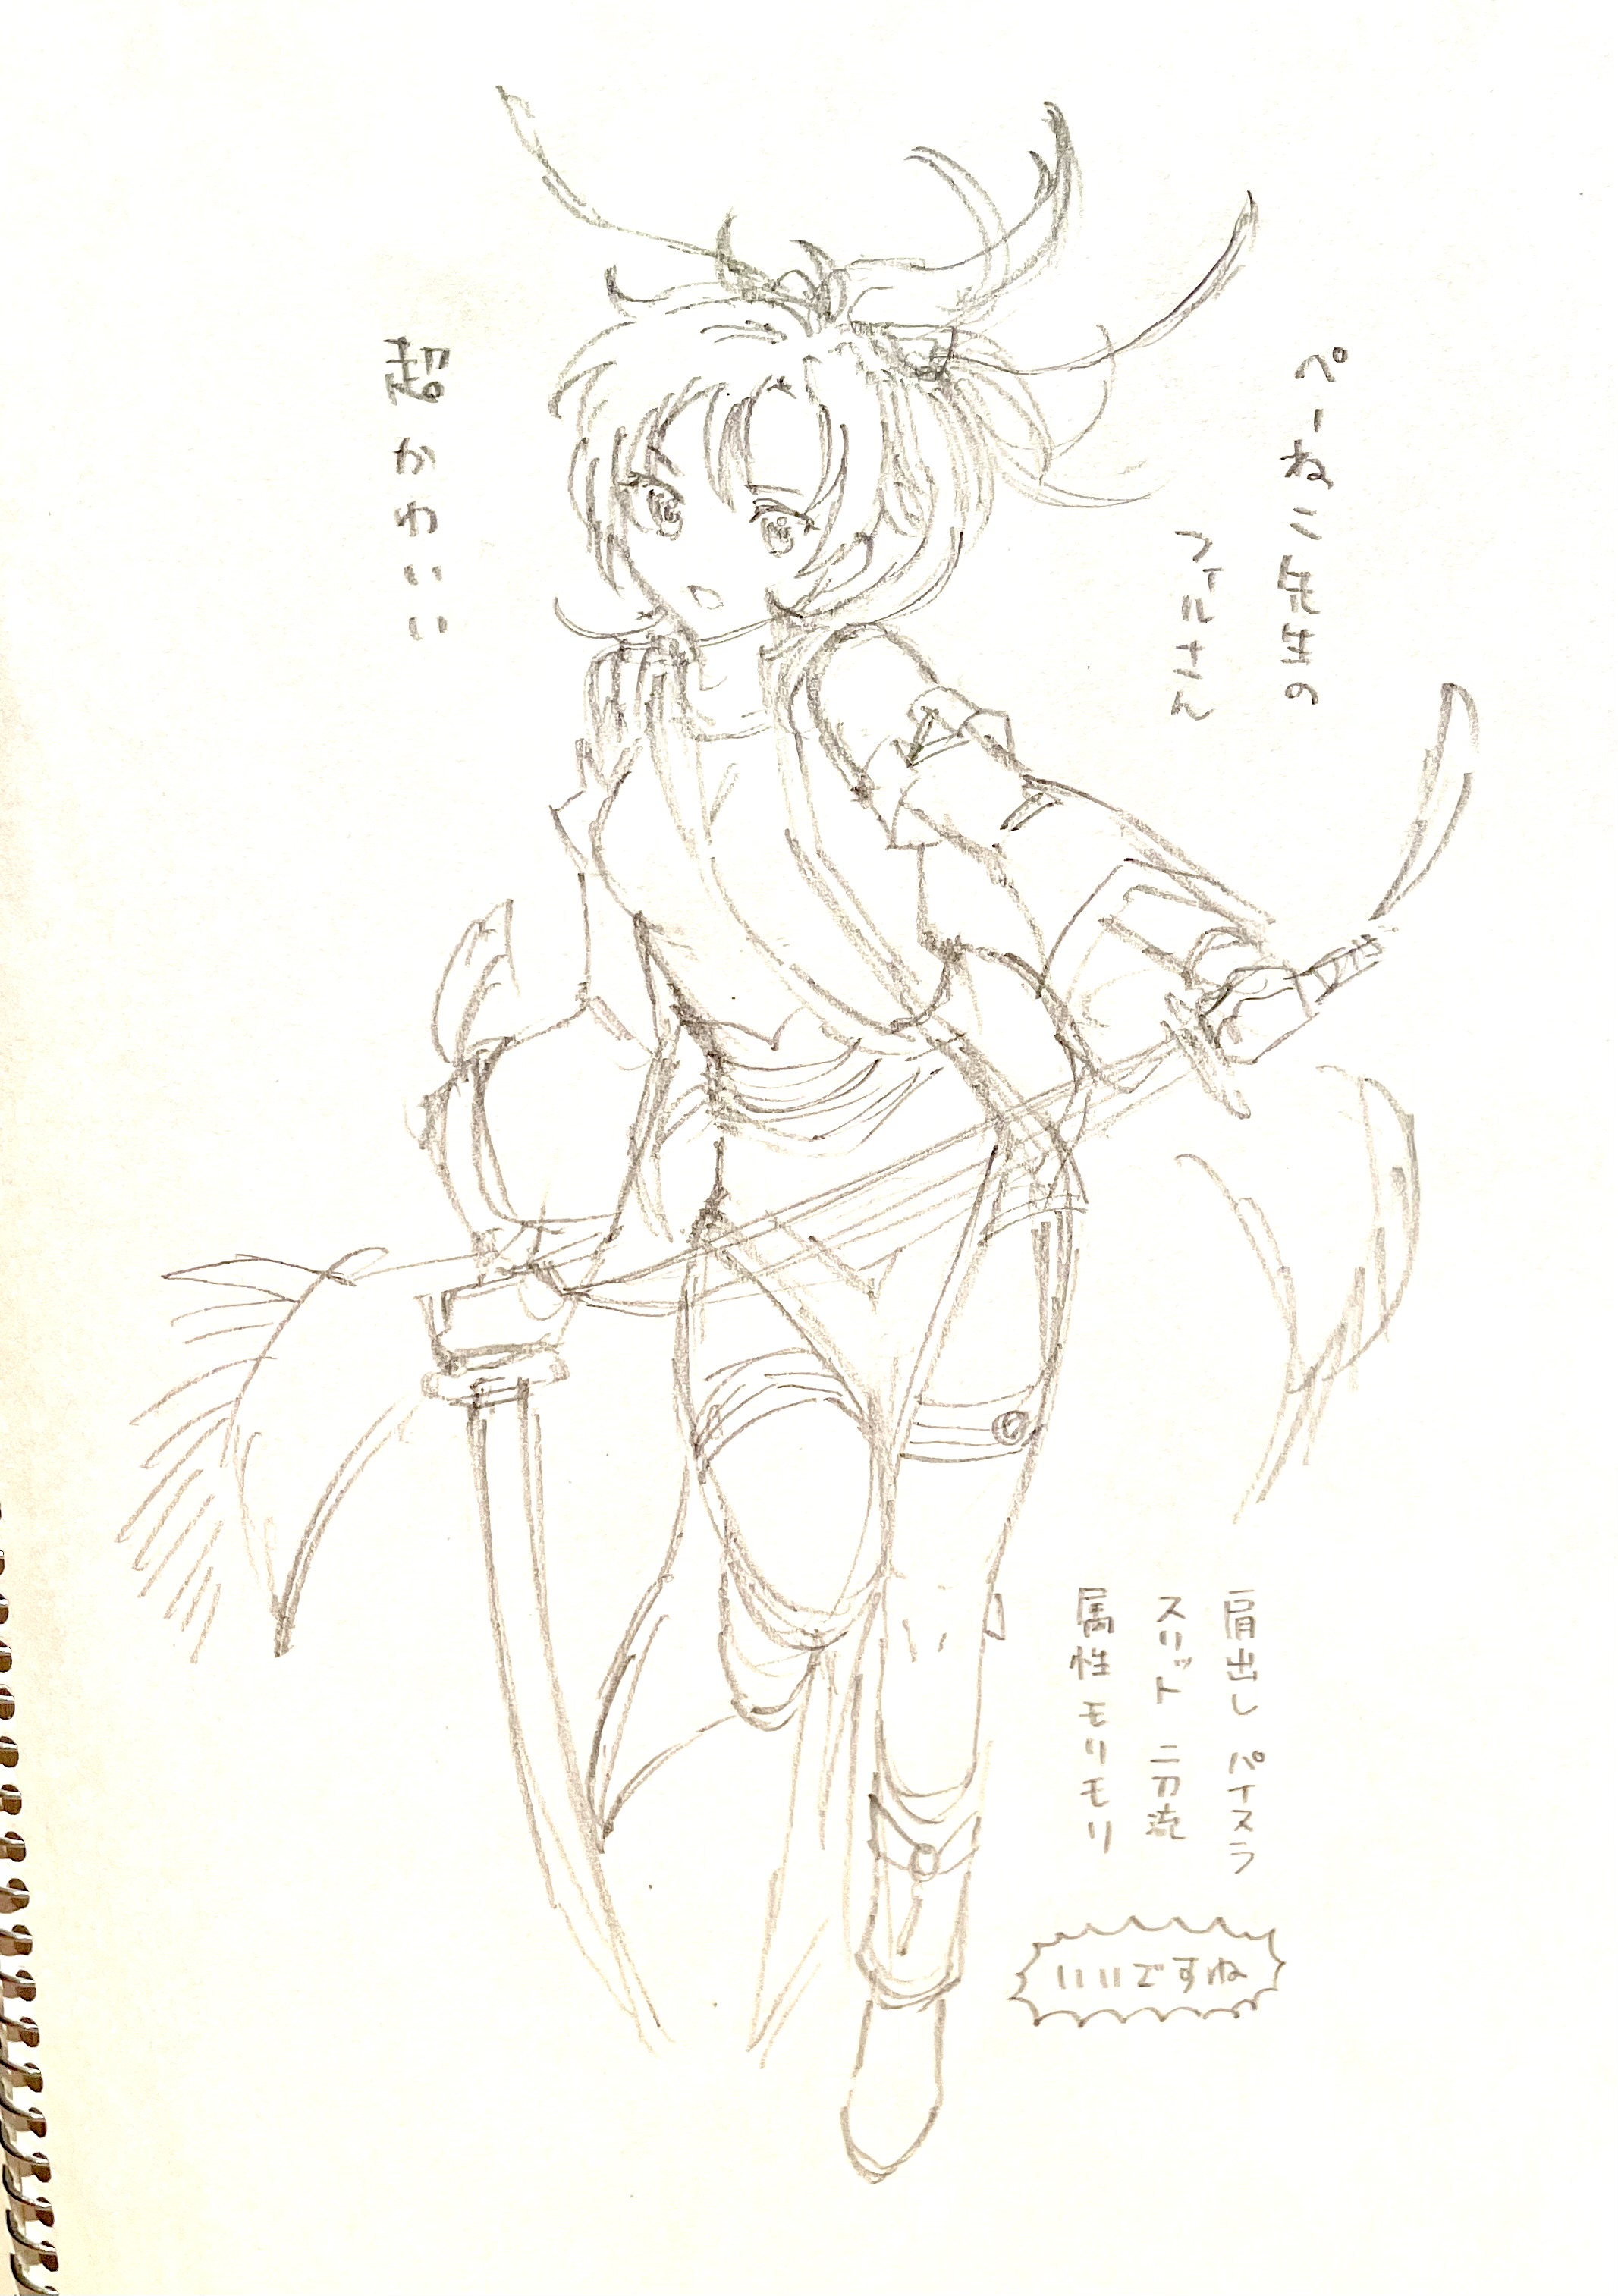 ぺーねこ先生の
フィルさん
超かわいい
肩出し パイスラ
スリット 二刀流
属性モリモリ
いいですね